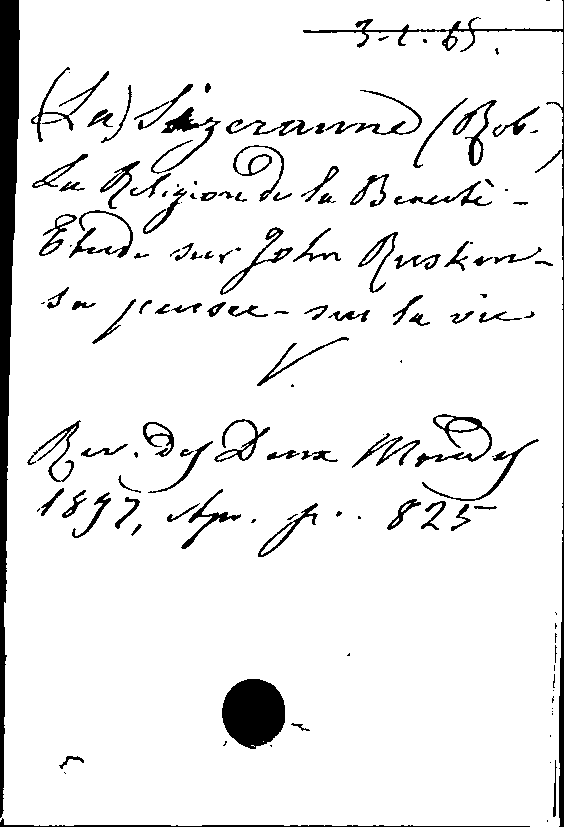 3-2.65.
(La) Sizeranne (Rob.)
La Religion de la Beauté -
Etude sur John Ruskin -
sa pensée - sur la vie
V.
Rev. des Deux Mondes
1897, Apr. p. 825